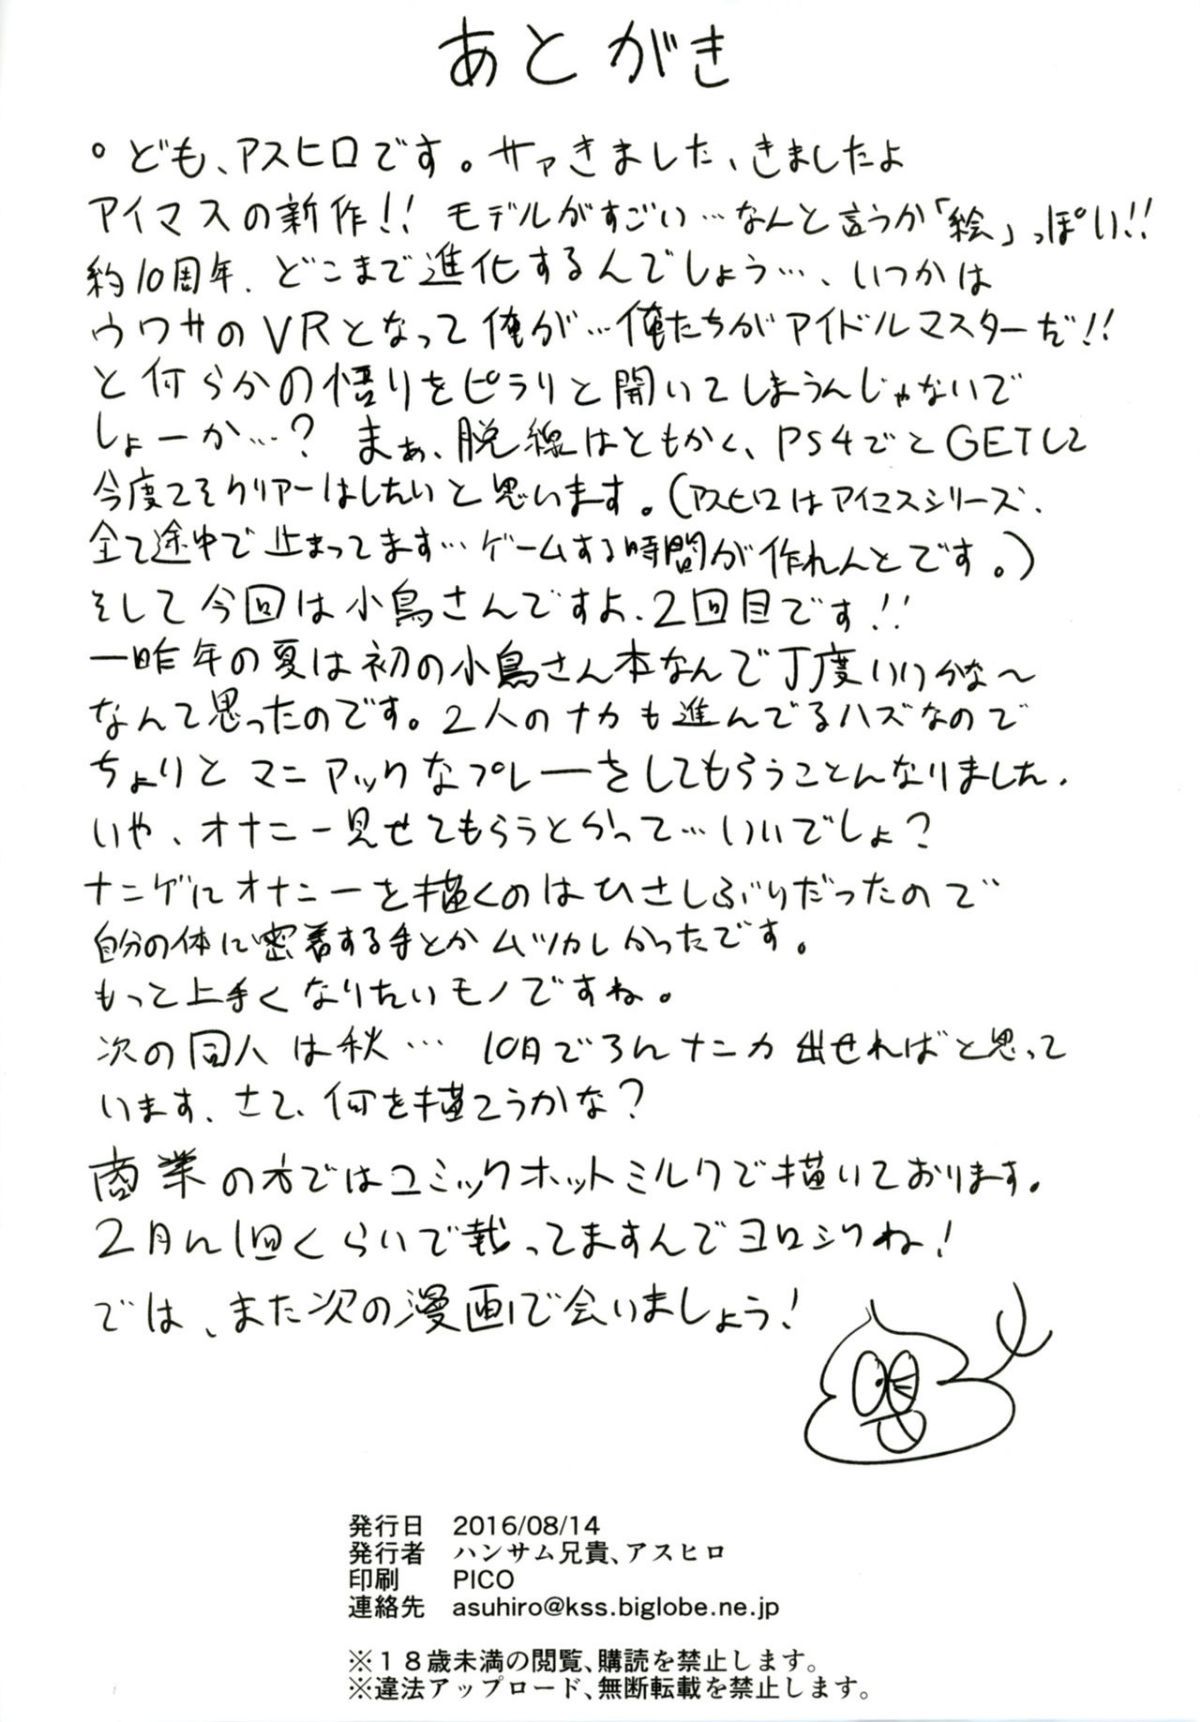 あとがき
。ども、アスヒロです。サァきました、きましたよ
アイマスの新作!! モデルがすごい…なんと言うか「絵」っぽい!!
約10周年、どこまで進化するんでしょう…、いつかは
ウワサのVRとなって俺が…俺たちがアイドルマスターだ!!
と何らかの悟りをピラリと開いてしまうんじゃないで
しょーか…? まぁ、脱線はともかく、PS4ごとGETして
今度こそクリアーはしたいと思います。(アスヒロはアイマスシリーズ、
全て途中で止まってます…ゲームする時間が作れんとです。)
そして今回は小鳥さんですよ、2回目です!!
一昨年の夏は初の小鳥さん本なんで丁度いいかな〜
なんて思ったのです。2人のナカも進んでるハズなので
ちょりとマニアックなプレーをしてもらうことんなりました、
いや、オナニー見せてもらうとかって…いいでしょ?
ナニゲにオナニーを描くのはひさしぶりだったので
自分の体に密着する手とかムツカしかったです。
もっと上手くなりたいモノですね。
次の同人は秋… 10月ごろんナニカ出せればと思って
います、さて、何を描こうかな?
商業の方ではコミックホットミルクで描いております。
2月に1回くらいで載ってますんでヨロシクね!
では、また次の漫画で会いましょう!
発行日 2016/08/14
発行者 ハンサム兄貴、アスヒロ
印刷 PICO
連絡先 asuhiro@kss.biglobe.ne.jp
※18歳未満の閲覧、購読を禁止します。
※違法アップロード、無断転載を禁止します。